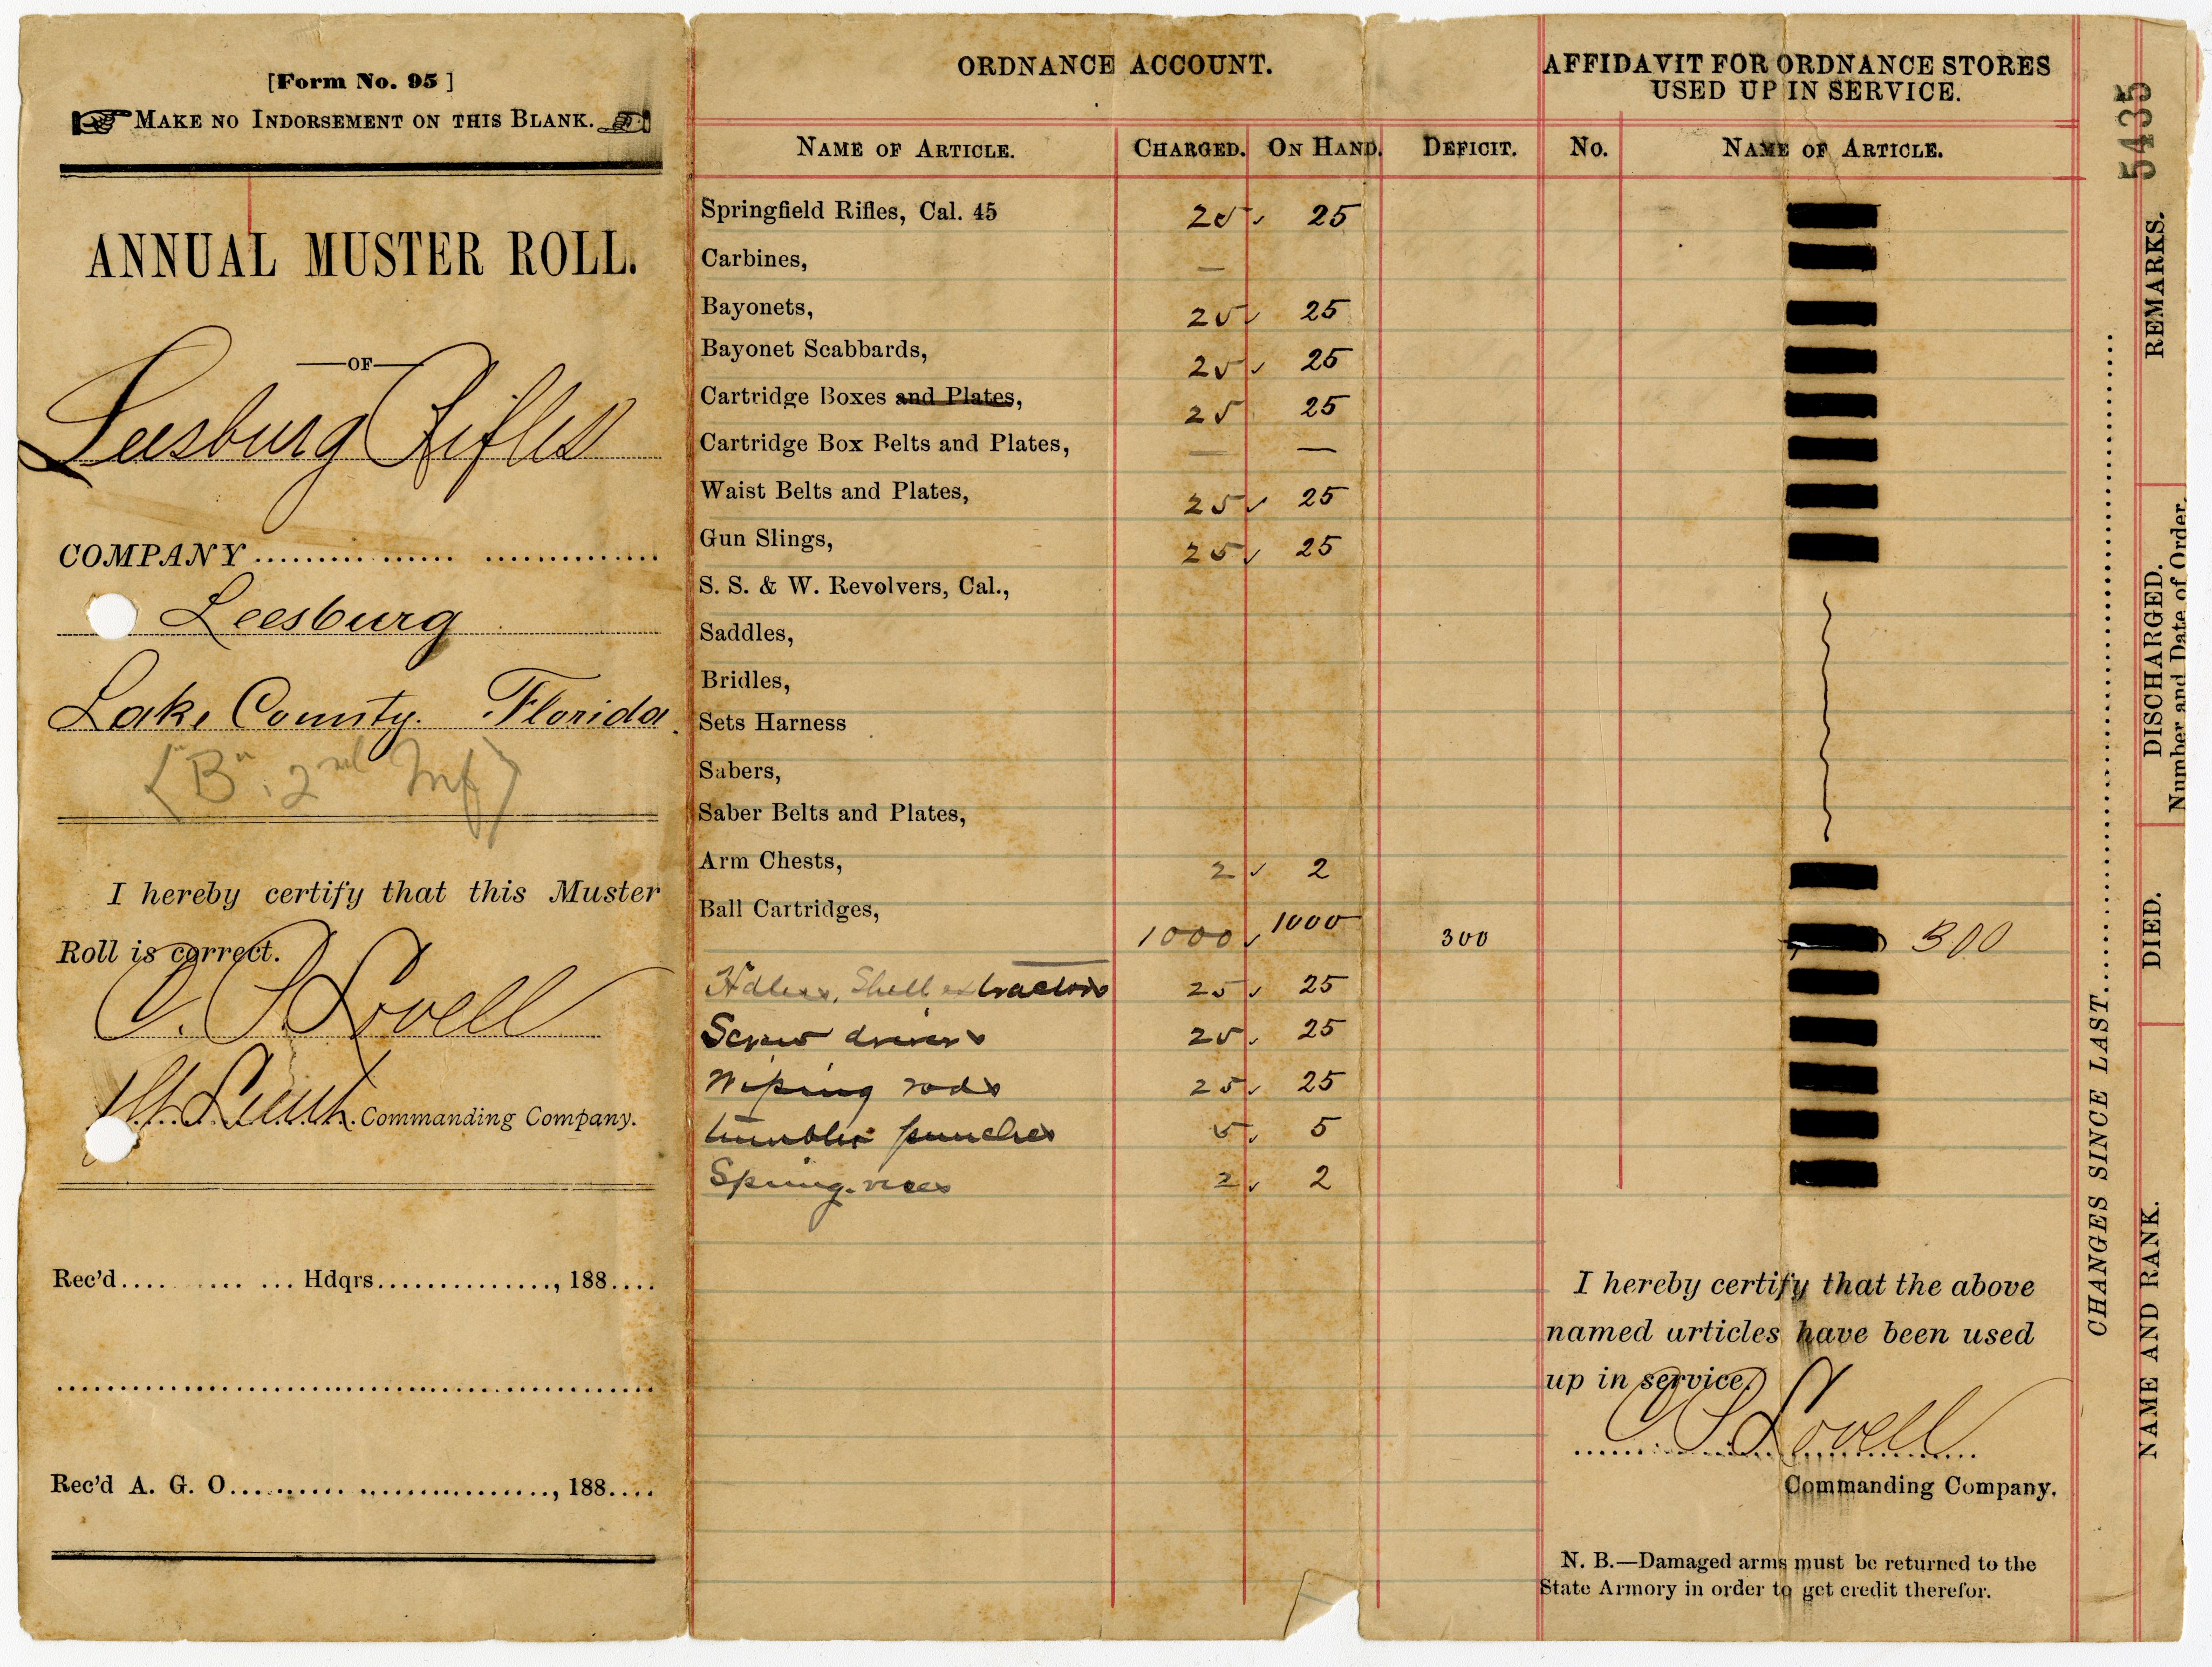 [Form No. 95 ]
MAKE NO INDORSEMENT ON THIS BLANK.
ANNUAL MUSTER ROLL.
—OF—
Leesburg Rifles
COMPANY
Leesburg
Lake County. Florida.
"B", 2nd Inf
I hereby certify that this Muster
Roll is correct.
C. P. Lovell
1st Lieut. Commanding Company.
Rec'd.... Hdqrs..............., 188....
Rec'd A. G. O..............., 188....
ORDNANCE ACCOUNT.
NAME OF ARTICLE. CHARGED. ON HAND. DEFICIT.
Springfield Rifles, Cal. 45 25 ✓ 25
Carbines, —
Bayonets, 25 ✓ 25
Bayonet Scabbards, 25 ✓ 25
Cartridge Boxes and Plates, 25 25
Cartridge Box Belts and Plates, — —
Waist Belts and Plates, 25 ✓ 25
Gun Slings, 25 ✓ 25
S. S. & W. Revolvers, Cal.,
Saddles,
Bridles,
Sets Harness
Sabers,
Saber Belts and Plates,
Arm Chests, 2 ✓ 2
Ball Cartridges, 1000 ✓ 1000 300
Hdless, Shell extractors 25 ✓ 25
Screw drivers 25 ✓ 25
Wiping rods 25 ✓ 25
tumbler punches 5 ✓ 5
Spring vices 2 ✓ 2
AFFIDAVIT FOR ORDNANCE STORES
USED UP IN SERVICE.
No. NAME OF ARTICLE.
300
I hereby certify that the above
named articles have been used
up in service.
C P Lovell
Commanding Company.
N. B.—Damaged arms must be returned to the
State Armory in order to get credit therefor.
CHANGES SINCE LAST
NAME AND RANK.
DIED.
DISCHARGED.
Number and Date of Order.
REMARKS.
5435